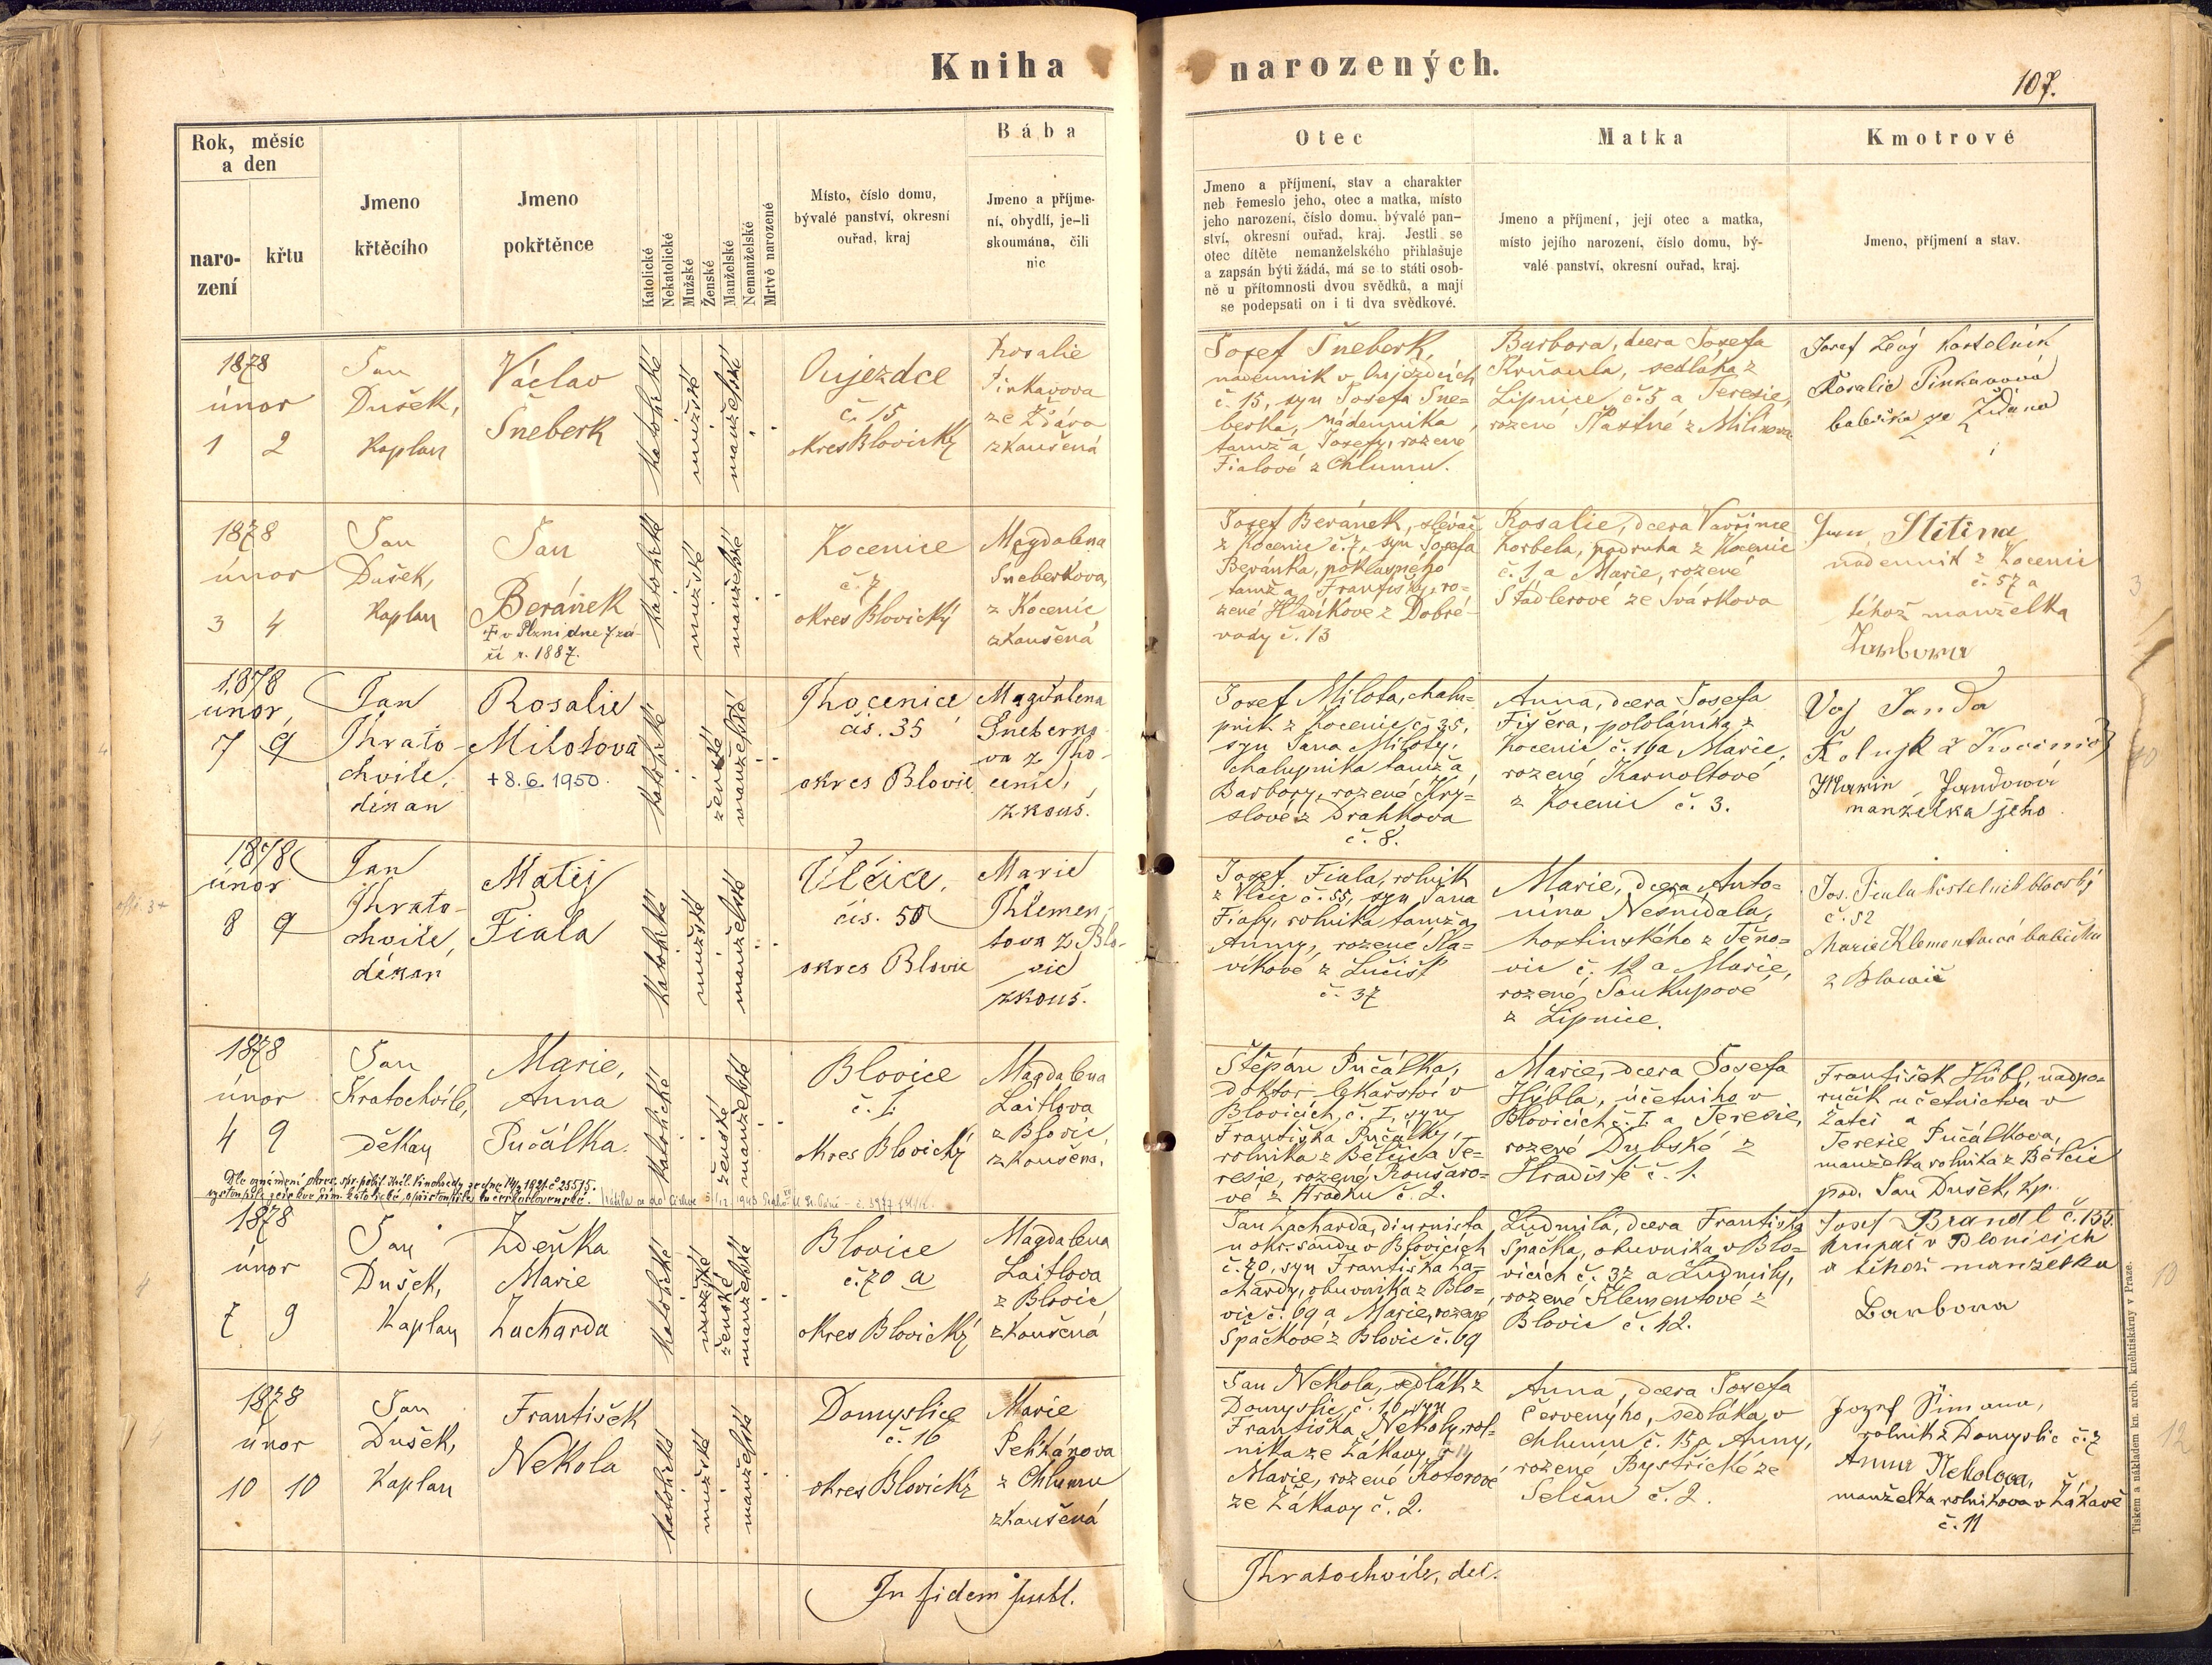 Kniha narozených.
107.
Rok, měsíc
a den
naro-
zení
křtu
Jmeno
křtěcího
Jmeno
pokřtěnce
Katolické
Nekatolické
Mužské
Ženské
Manželské
Nemanželské
Mrtvě narozené
Místo, číslo domu,
bývalé panství, okresní
ouřad, kraj
Bába
Jmeno a příjme-
ní, obydlí, je-li
skoumána, čili
nic
Otec
Jmeno a příjmení, stav a charakter
neb řemeslo jeho, otec a matka, místo
jeho narození, číslo domu, bývalé pan-
ství, okresní ouřad, kraj. Jestli se
otec dítěte nemanželského přihlašuje
a zapsán býti žádá, má se to státi osob-
ně u přítomnosti dvou svědků, a mají
se podepsati on i ti dva svědkové.
Matka
Jmeno a příjmení, její otec a matka,
místo jejího narození, číslo domu, bý-
valé panství, okresní ouřad, kraj.
Kmotrové
Jmeno, příjmení a stav.
1878
únor
1 2
Jan
Dušek,
Kaplan
Václav
Šneberk
katolické
mužské
manželské
Oujezdce
č. 15
okres Blovický
Rosalie
Pinkavova
ze Ždára
zkoušená
Josef Šneberk,
nádenník v Oujezdcích
č. 15, syn Josefa Šne-
berka, nádenníka
tamž a Josefy, rozené
Fialové z Chlumu.
Barbora, dcera Josefa
Krňoula, sedláka z
Lipnice č. 5 a Teresie,
rozené Šťastné z Milínova
Josef Levý kostelník
Rosalie Pinkavová
babička ze Ždára
1878
únor
3 4
Jan
Dušek,
Kaplan
Jan
Beránek
+ v Plzni dne 7 zá-
ří r. 1887.
katolické
mužské
manželské
Kocenice
č. 7
okres Blovický
Magdalena
Šneberkova,
z Kocenic
zkoušená
Josef Beránek, slévač
z Kocenic č. 7, syn Josefa
Beránka, poklasného
tamž a Františky, ro-
zené Hladíkove z Dobré
vody č. 13
Rosalie, dcera Vavřince
Korbela, podruha z Kocenic
č. 1 a Marie, rozené
Stadlerové ze Svárkova
Jan Štětina
nadennik z Kocenic
č. 57 a
téhož manželka
Barbora
1878
únor,
7 9
Jan
Khrato-
chvíle,
děkan
Rosalie
Milotova
+ 8. 6. 1950.
katolické
ženské
manželské
Khocenice
čís. 35
okres Blovic
Magdalena
Šneberko-
va z Kho-
cenic,
zkouš.
Josef Milota, chalu-
pník z Kocenic č. 35,
syn Jana Miloty,
chalupníka tamž a
Barbory, rozené Kry-
slové z Drahkova
č. 8.
Anna, dcera Josefa
Fišera, pololáníka z
Kocenic č. 16 a Marie,
rozené Karnoltové
z Kocenic č. 3.
Voj Janda
Marie Jandová
manželka jeho
1878
únor
8 9
Jan
Khrato-
chvíle,
děkan
Matěj
Fiala
katolické
mužské
manželské
Vlčice,
čís. 50
okres Blovic
Marie
Khlemen-
tova z Blo-
vic
zkouš.
Josef Fiala, rolník
z Vlčic č. 55, syn Jana
Fialy, rolníka tamž a
Anny, rozené Sla-
víkové z Lučišť
č. 37
Marie, dcera Anto-
nína Nesnídala,
hostinského z Těno-
vic č. 12 a Marie,
rozené Soukupové
z Lipnice.
Jos. Fiala kostelník blovský
č. 52
Marie Klementová babička
z Blovic
1878
únor
4 9
Jan
Kratochvíle,
děkan
Marie,
Anna
Pučálka.
katolické
ženské
manželské
Blovice
č. I.
okres Blovický
Magdalena
Laitlova
z Blovic,
zkoušená.
Štěpán Pučálka,
doktor lékařství v
Blovicích, č. I, syn
Františka Pučálky,
rolníka z Bělčic a Te-
resie, rozené Roušaro-
vé z Hrádku č. 2.
Marie, dcera Josefa
Hýbla, účetního v
Blovicích č. I a Teresie,
rozené Dubské z
Hradiště č. 1.
František Hübl, nadpo-
ručík účetnictva v
Žatci a
Teresie Pučálkova,
manželka rolníka z Bělčic
pod. Jan Dušek, kp.
1878
únor
7 9
Jan
Dušek,
Kaplan
Zdeňka
Marie
Zacharda
katolické
mužské
ženské
manželské
Blovice
č. 70 a
okres Blovický
Magdalena
Laitlova
z Blovic
zkoušená
Jan Zacharda, diurnista
u okr. soudu v Blovicích
č. 70, syn Františka Za-
chardy, obuvníka z Blo-
vic č. 69 a Marie, rozené
Špačkové z Blovic č. 69
Ludmila, dcera Františka
Špačka, obuvníka v Blo-
vicích č. 37 a Ludmily,
rozené Klementové z
Blovic č. 42.
Josef Brandl č. 135
krupař v Blovicích
a téhož manželka
Barbora
1878
únor
10 10
Jan
Dušek,
Kaplan
František
Nekola
katolické
mužské
manželské
Domyslice
č. 16
okres Blovický
Marie
Pelikánova
z Chlumu
zkoušená
Jan Nekola, sedlák z
Domyslic, č. 16, syn
Františka Nekoly, rol-
níka ze Žákavy č. 11
Marie, rozené Kotorové
ze Žákavy č. 2.
Anna, dcera Josefa
Červenýho, sedláka, v
Chlumu č. 15 a Anny,
rozené Bystřické ze
Selčan č. 2.
Jozef Šimana,
rolník z Domyslic č. 7
Anna Nekolova,
manželka rolníkova v Žákavě
č. 11
In fidem publ.
Khratochvíle, děk.
Tiskem a nákladem kn. arcib. kněhtiskárny v Praze.